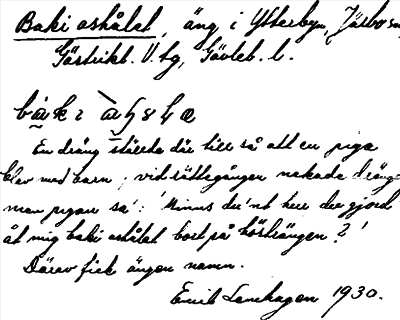 Baki ashålet, äng i Ytterbyn, Järbo sn,
Gästrikl. V. tg, Gävleb. l.
En dräng ställde där till så att en piga
blev med barn; vid rättegången nekade dräng
men pigan sa': 'Minns du 'nt hur du gjord
åt mig baki ashålet bort på Hästrängen?'
Därav fick ängen namn.
Emik Lenhagen 1930.